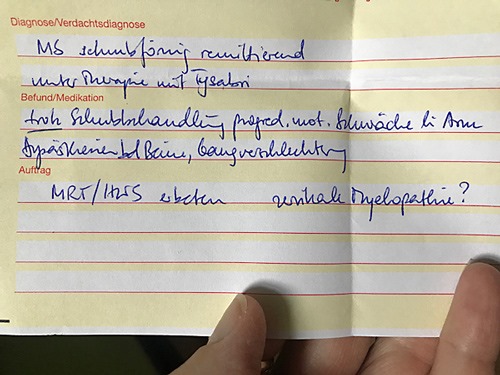 Diagnose/Verdachtsdiagnose
MS schubförmig remittierend
unter Therapie mit Tysabri
Befund/Medikation
trotz Schubbehandlung progred. mot. Schwäche li Arm
Dysästhesien bd Beine, Gangverschlechtrg
Auftrag
MRT/HWS erbeten zervikale Myelopathie?